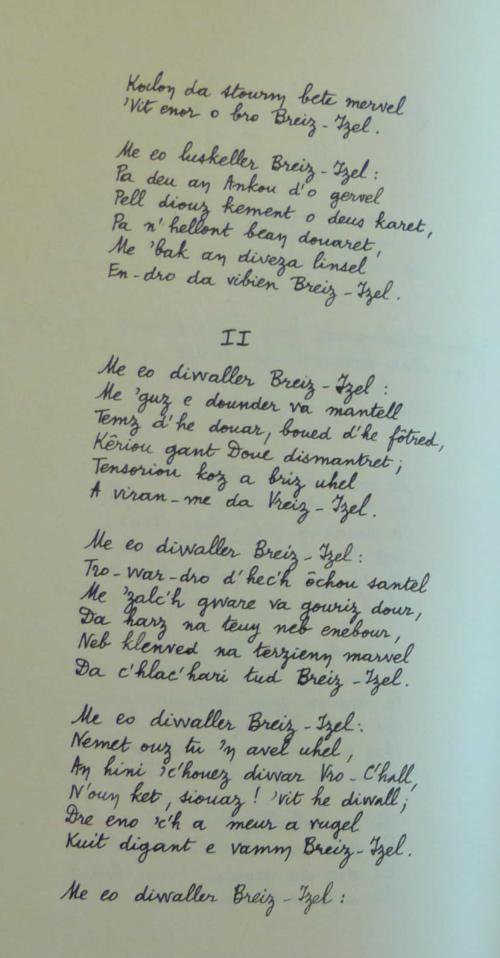 Kalon da stourm bete mervel
'Vit enor o bro Breiz-Izel.
Me eo luskeller Breiz-Izel :
Pa deu an Ankou d'o gervel
Pell diouz kement o deus karet,
Pa n'hellont bean douaret,
Me 'bak an diveza linsel
En-dro da vibien Breiz-Izel.
II
Me eo diwaller Breiz-Izel :
Me 'guz e dounder va mantell
Temz d'he douar, boued d'he fôtred,
Kêriou gant Doue dismantret ;
Tensoriou koz a briz uhel
A viran-me da Vreiz-Izel.
Me eo diwaller Breiz-Izel :
Tro-war-dro d'hec'h ôchou santel
Me 'zalc'h gware va gouriz dour,
Da harz na teuy neb enebour,
Neb klenved na terzienn marvel
Da c'hlac'hari tud Breiz-Izel.
Me eo diwaller Breiz-Izel :
Nemet ouz tu 'n avel uhel,
An hini 'c'houez diwar Vro-C'hall,
N'oun ket, siouaz ! 'vit he diwall ;
Dre eno 'c'h a meur a vugel
Kuit digant e vamm Breiz-Izel.
Me eo diwaller Breiz-Izel :